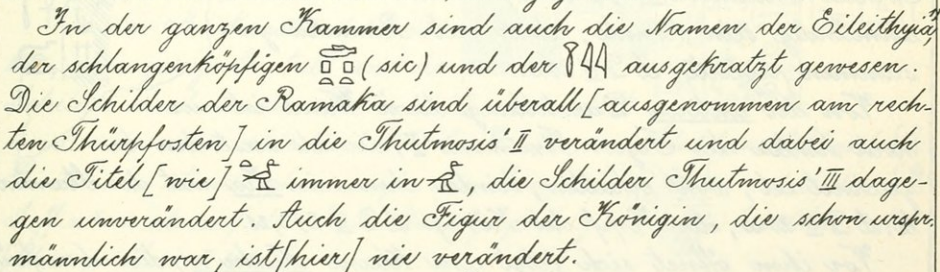 In der ganzen Kammer sind auch die Namen der Eileithyia,
der schlangenköpfigen (sic) und der ausgekratzt gewesen.
Die Schilder der Ramaka sind überall [ausgenommen am rech-
ten Thürpfosten] in die Thutmosis' II verändert und dabei auch
die Titel [wie] immer in , die Schilder Thutmosis' III dage-
gen unverändert. Auch die Figur der Königin, die schon urspr.
männlich war, ist [hier] nie verändert.